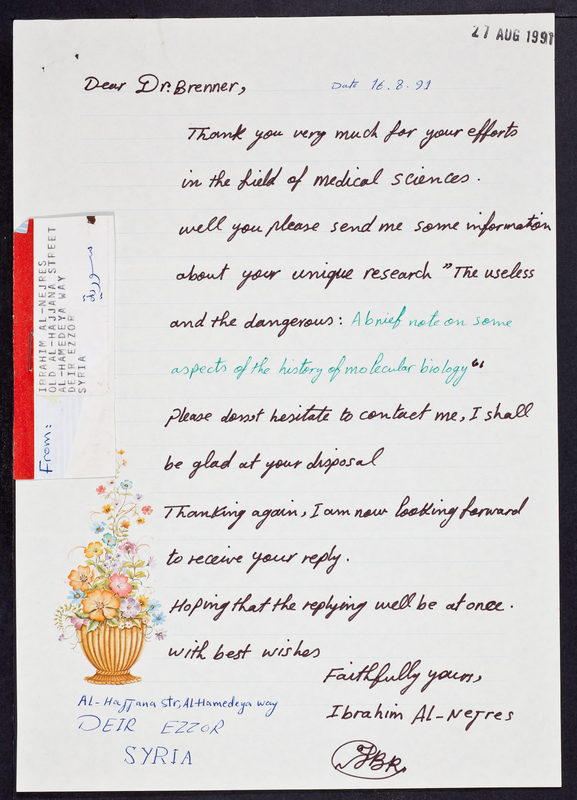 27 AUG 1991
Dear Dr. Brenner,
Date 16.8.91
Thank you very much for your efforts
in the field of medical sciences.
well you please send me some information
about your unique research "The useless
and the dangerous: A brief note on some
aspects of the history of molecular biology"
please donst hesitate to contact me, I shall
be glad at your disposal
Thanking again, I am now looking forward
to receive your reply.
Hoping that the replying well be at once.
with best wishes
Faithfully yours,
Ibrahim Al-Nejres
IBR
From:
IBRAHIM AL-NEJRES
OLD AL-HAJJANA STREET
AL-HAMEDEYA WAY
DEIR EZZOR
SYRIA
سورية
AL-Hajjana str, Al-Hamedeya way
DEIR EZZOR
SYRIA